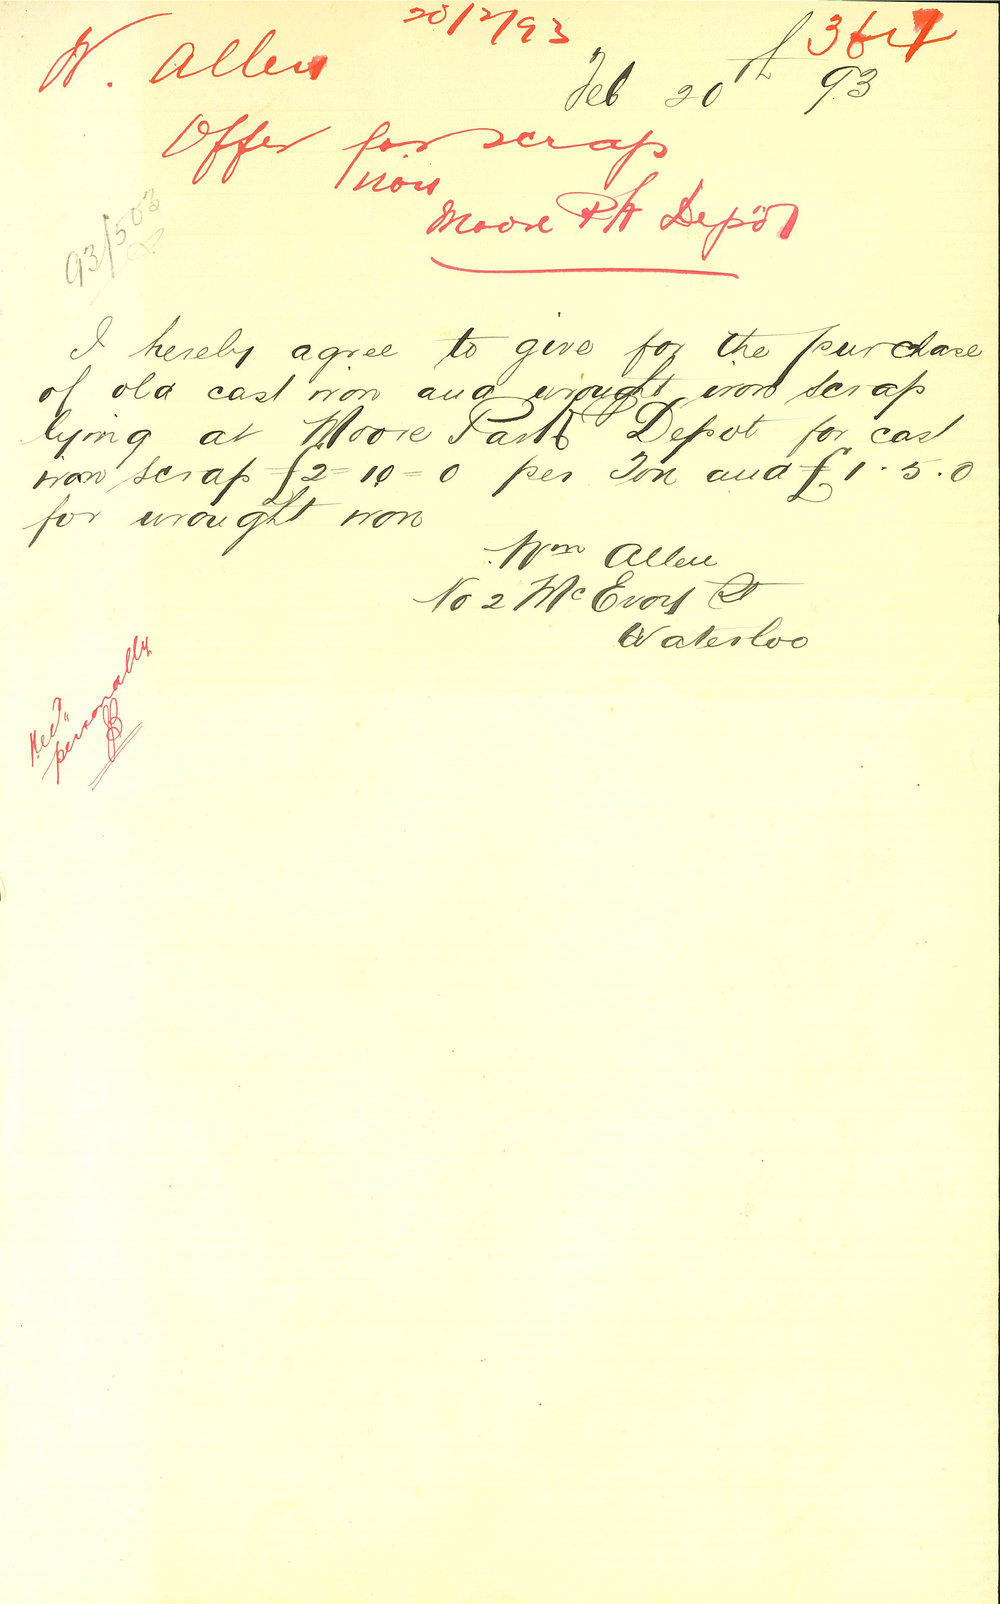 20/2/93
W. Allen
Feb 20th 93
Offer for scrap
iron
Moore Pk Depôt
93/503
I hereby agree to give for the purchase
of old cast iron and wrought iron scrap
lying at Moore Park Depot for cast
iron scrap £2=10=0 per Ton and £1.5.0
for wrought iron
Wm Allen
No 2 McEvoy St
Waterloo
Recd
personally